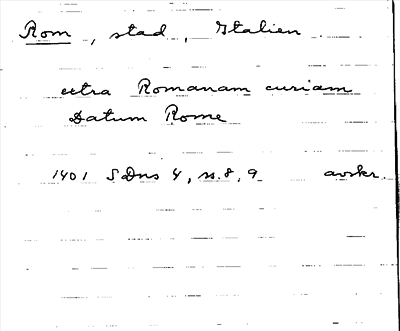 Rom, stad, Italien
extra Romanam curiam
Datum Rome
1401 SDns 4, s. 8, 9 avskr.